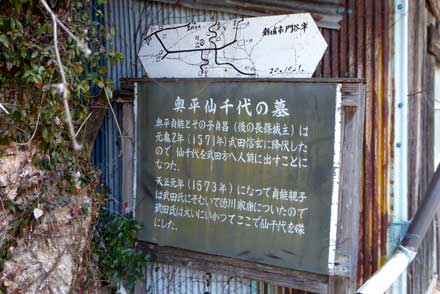 奥平仙千代の墓
奥平貞能とその子貞昌(後の長篠城主)は
元亀2年(1571年)武田信玄に降伏した
ので 仙千代を武田方へ人質に出すことに
なった.
天正元年(1573年)になって貞能親子
は武田氏にそむいて徳川家康についたので
武田氏は大いにいかってここで仙千代を磔
にした.